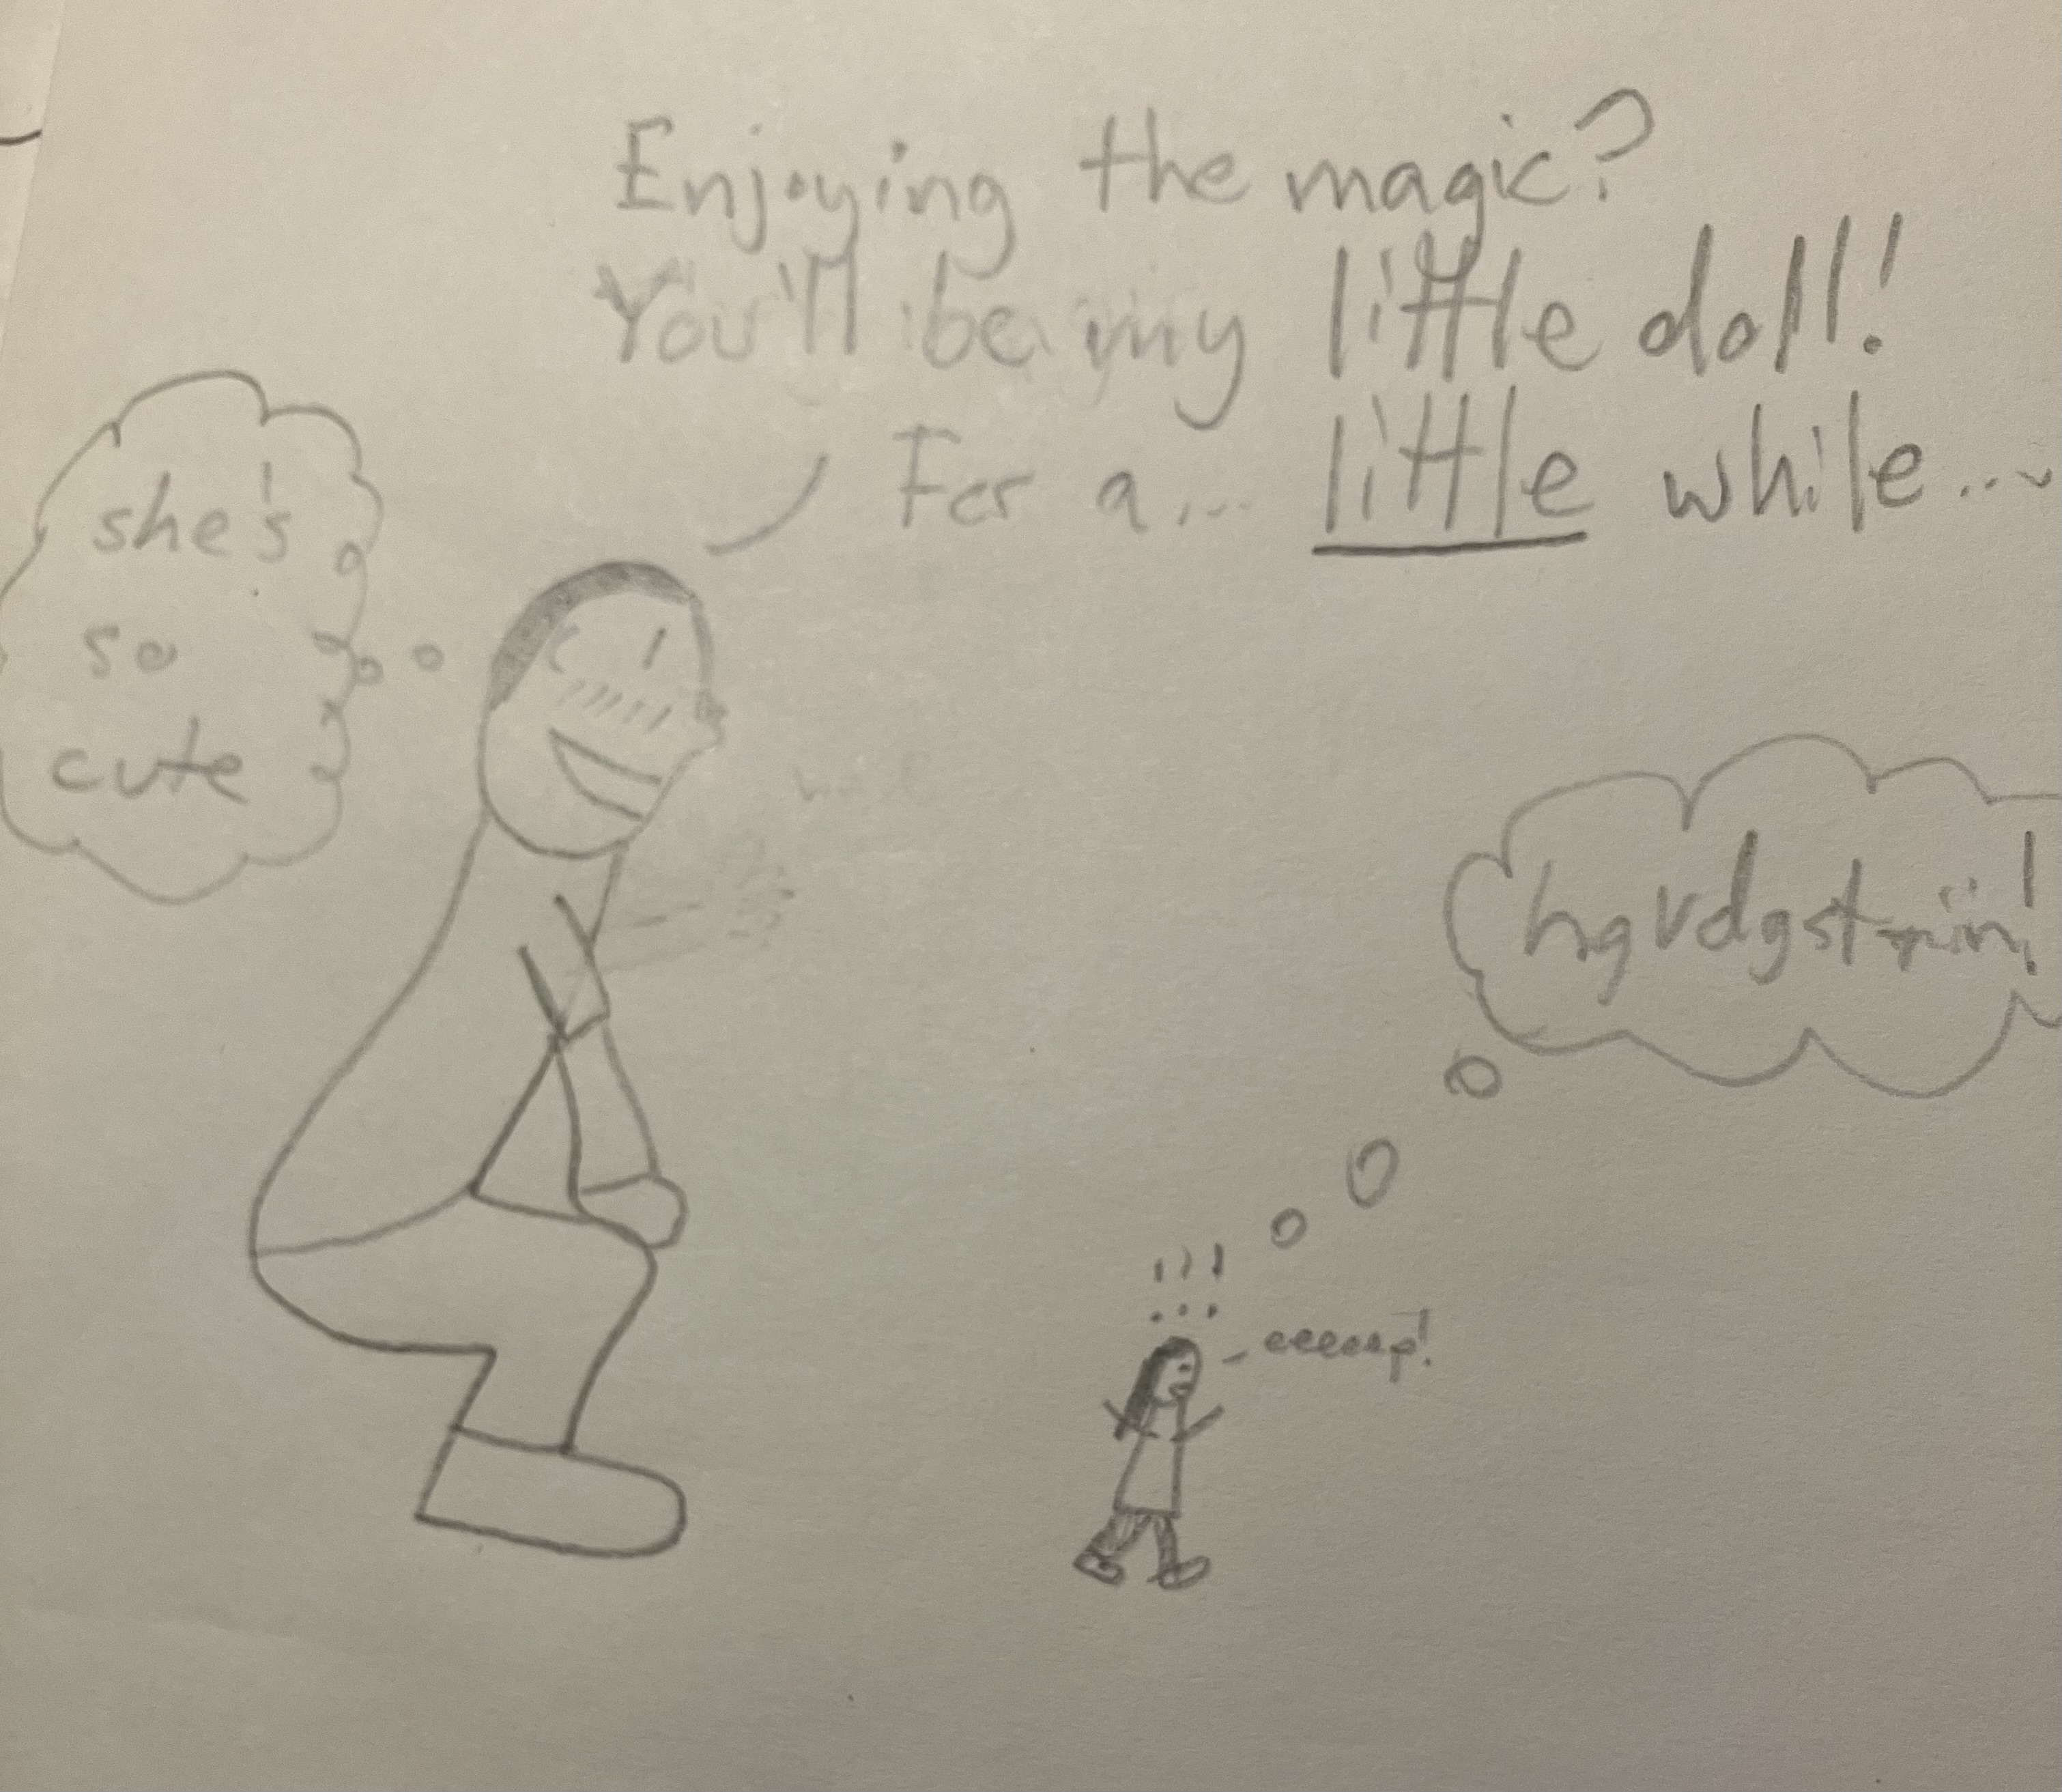 Enjoying the magic?
You'll be my little doll!
For a... little while...
she's
so
cute
hgvdgstriin!
eeeeep!